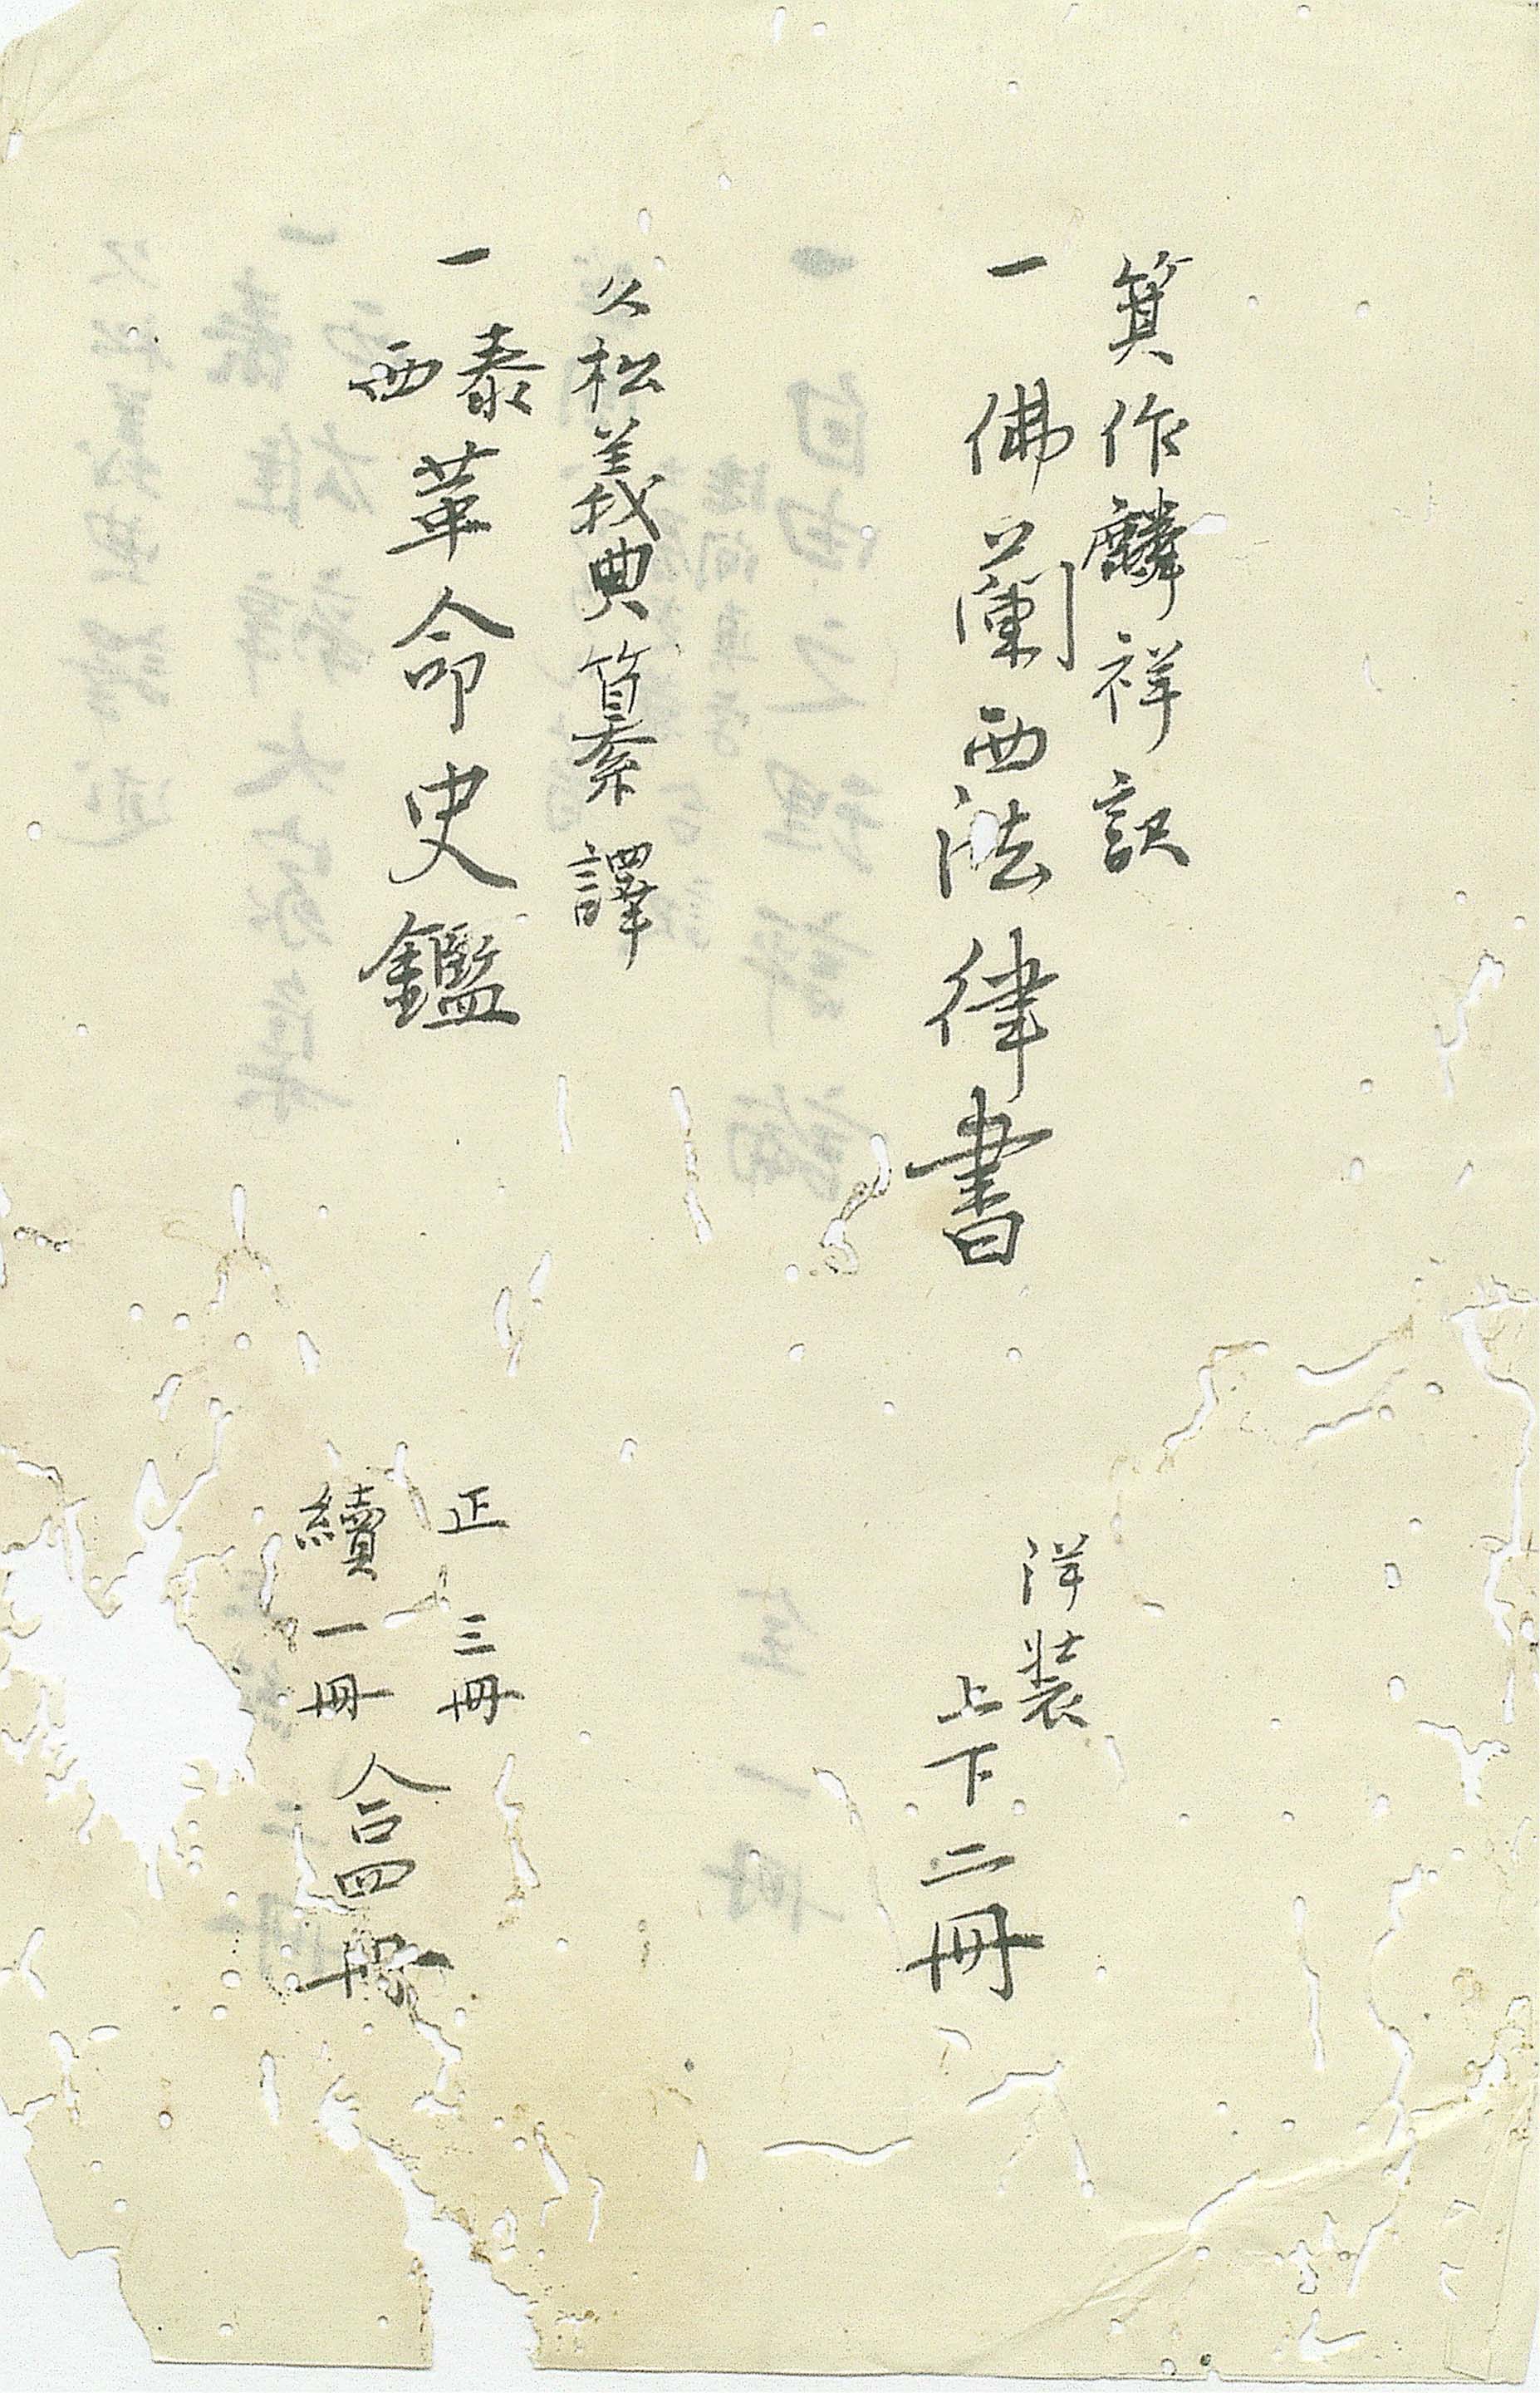 箕作麟祥訳
一 佛蘭西法律書
洋装
上下二冊
久松義典纂譯
一 泰西革命史鑑
正 三冊
續 一冊
合四冊